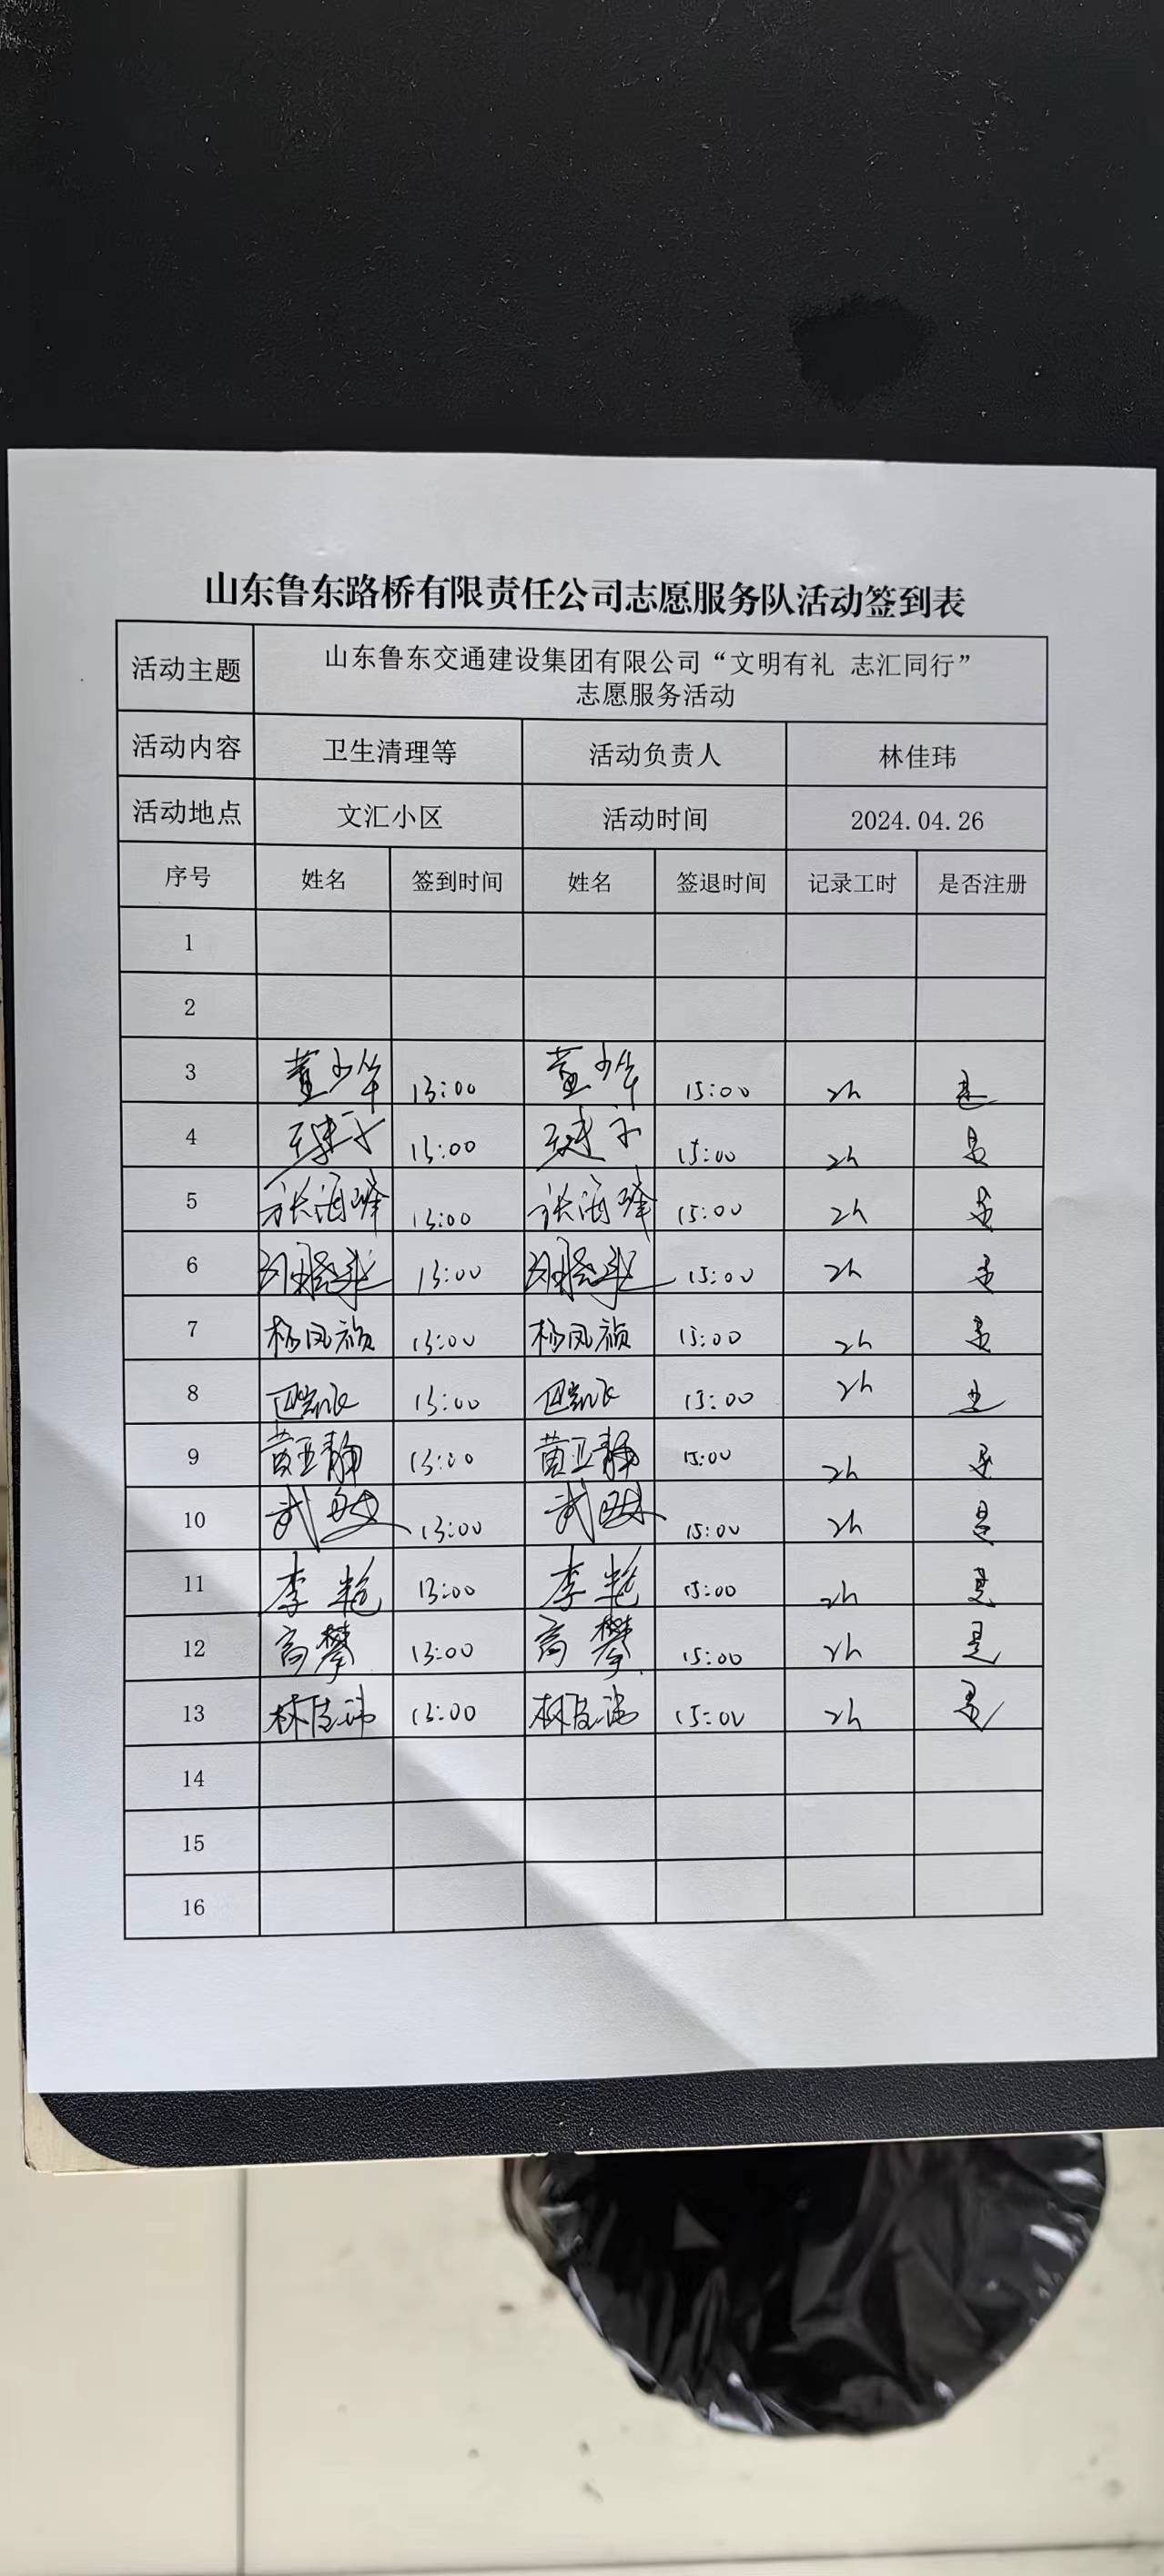 山东鲁东路桥有限责任公司志愿服务队活动签到表
活动主题 山东鲁东交通建设集团有限公司“文明有礼 志汇同行”
志愿服务活动
活动内容 卫生清理等 活动负责人 林佳玮
活动地点 文汇小区 活动时间 2024.04.26
序号 姓名 签到时间 姓名 签退时间 记录工时 是否注册
1
2
3 董少华 13:00 董少华 15:00 2h 是
4 13:00 15:00 2h 是
5 张海峰 13:00 张海峰 15:00 2h 是
6 13:00 15:00 2h 是
7 杨凤祯 13:00 杨凤祯 15:00 2h 是
8 13:00 15:00 2h 是
9 黄亚静 13:00 黄亚静 15:00 2h 是
10 武敏 13:00 武敏 15:00 2h 是
11 李艳 13:00 李艳 15:00 2h 是
12 高攀 13:00 高攀 15:00 2h 是
13 林佳玮 13:00 林佳玮 15:00 2h 是
14
15
16